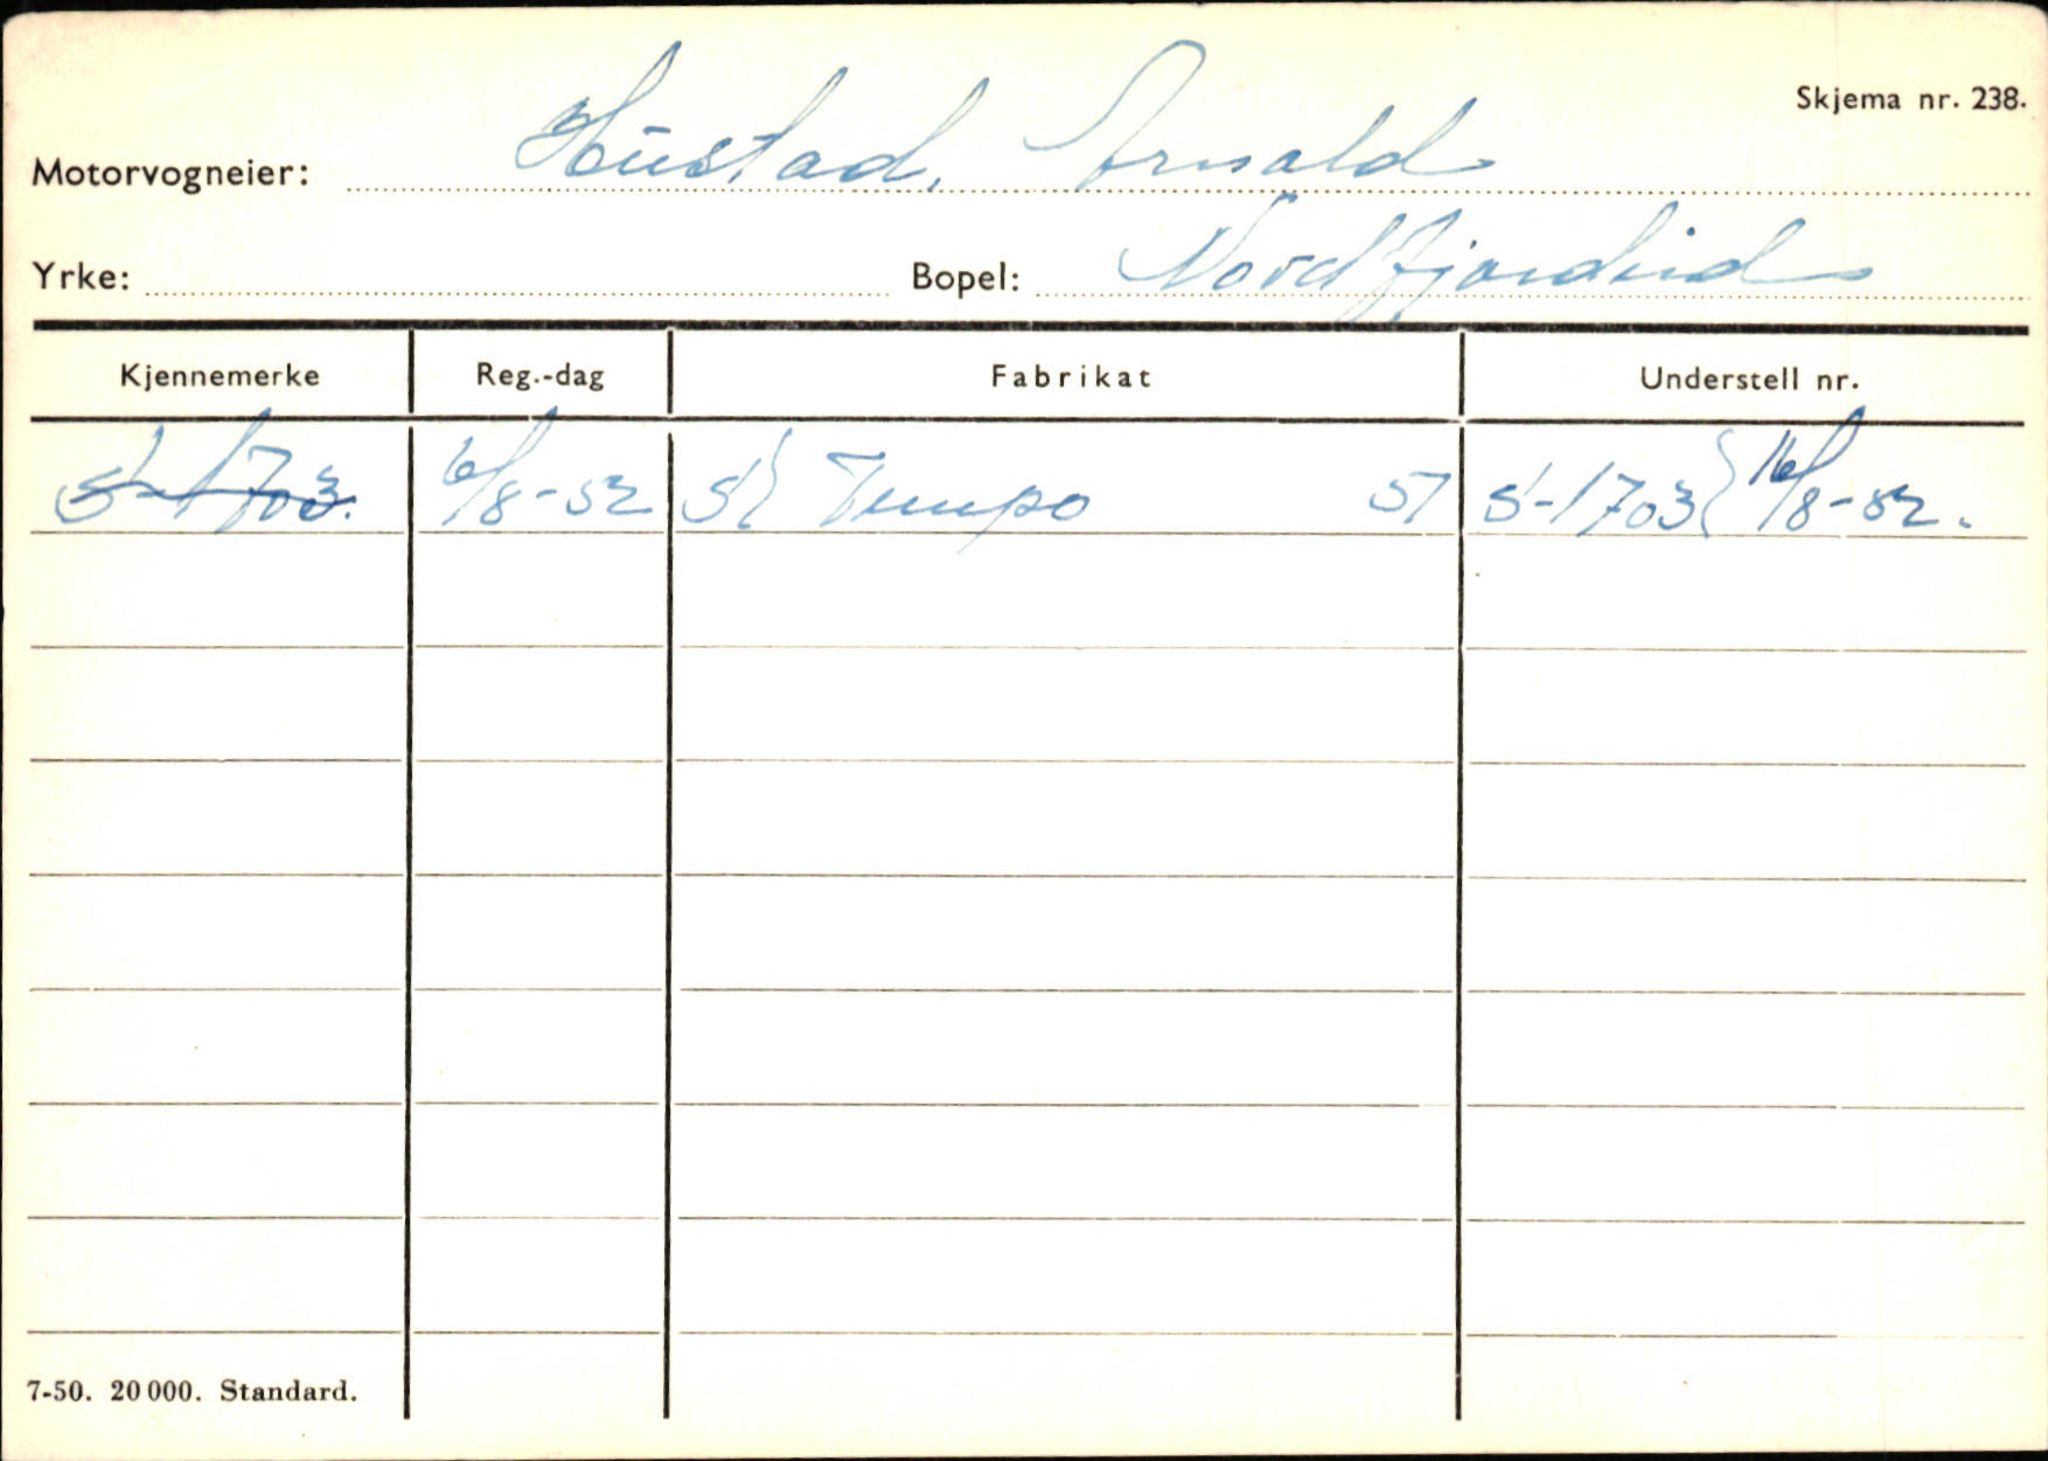 Skjema nr. 238.
Motorvogneier: Hustad, Arnold
Yrke: Bopel: Nordfjordeid
Kjennemerke Reg.-dag Fabrikat Understell nr.
S-1703. 6/8-52 Tempo 51 S-1703 16/8-52.
7-50. 20 000. Standard.